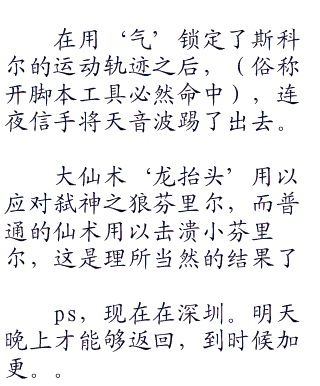 在用‘气’锁定了斯科
尔的运动轨迹之后，（俗称
开脚本工具必然命中），连
夜信手将天音波踢了出去。
大仙术‘龙抬头’用以
应对弑神之狼芬里尔，而普
通的仙术用以击溃小芬里
尔，这是理所当然的结果了
ps，现在在深圳。明天
晚上才能够返回，到时候加
更。。